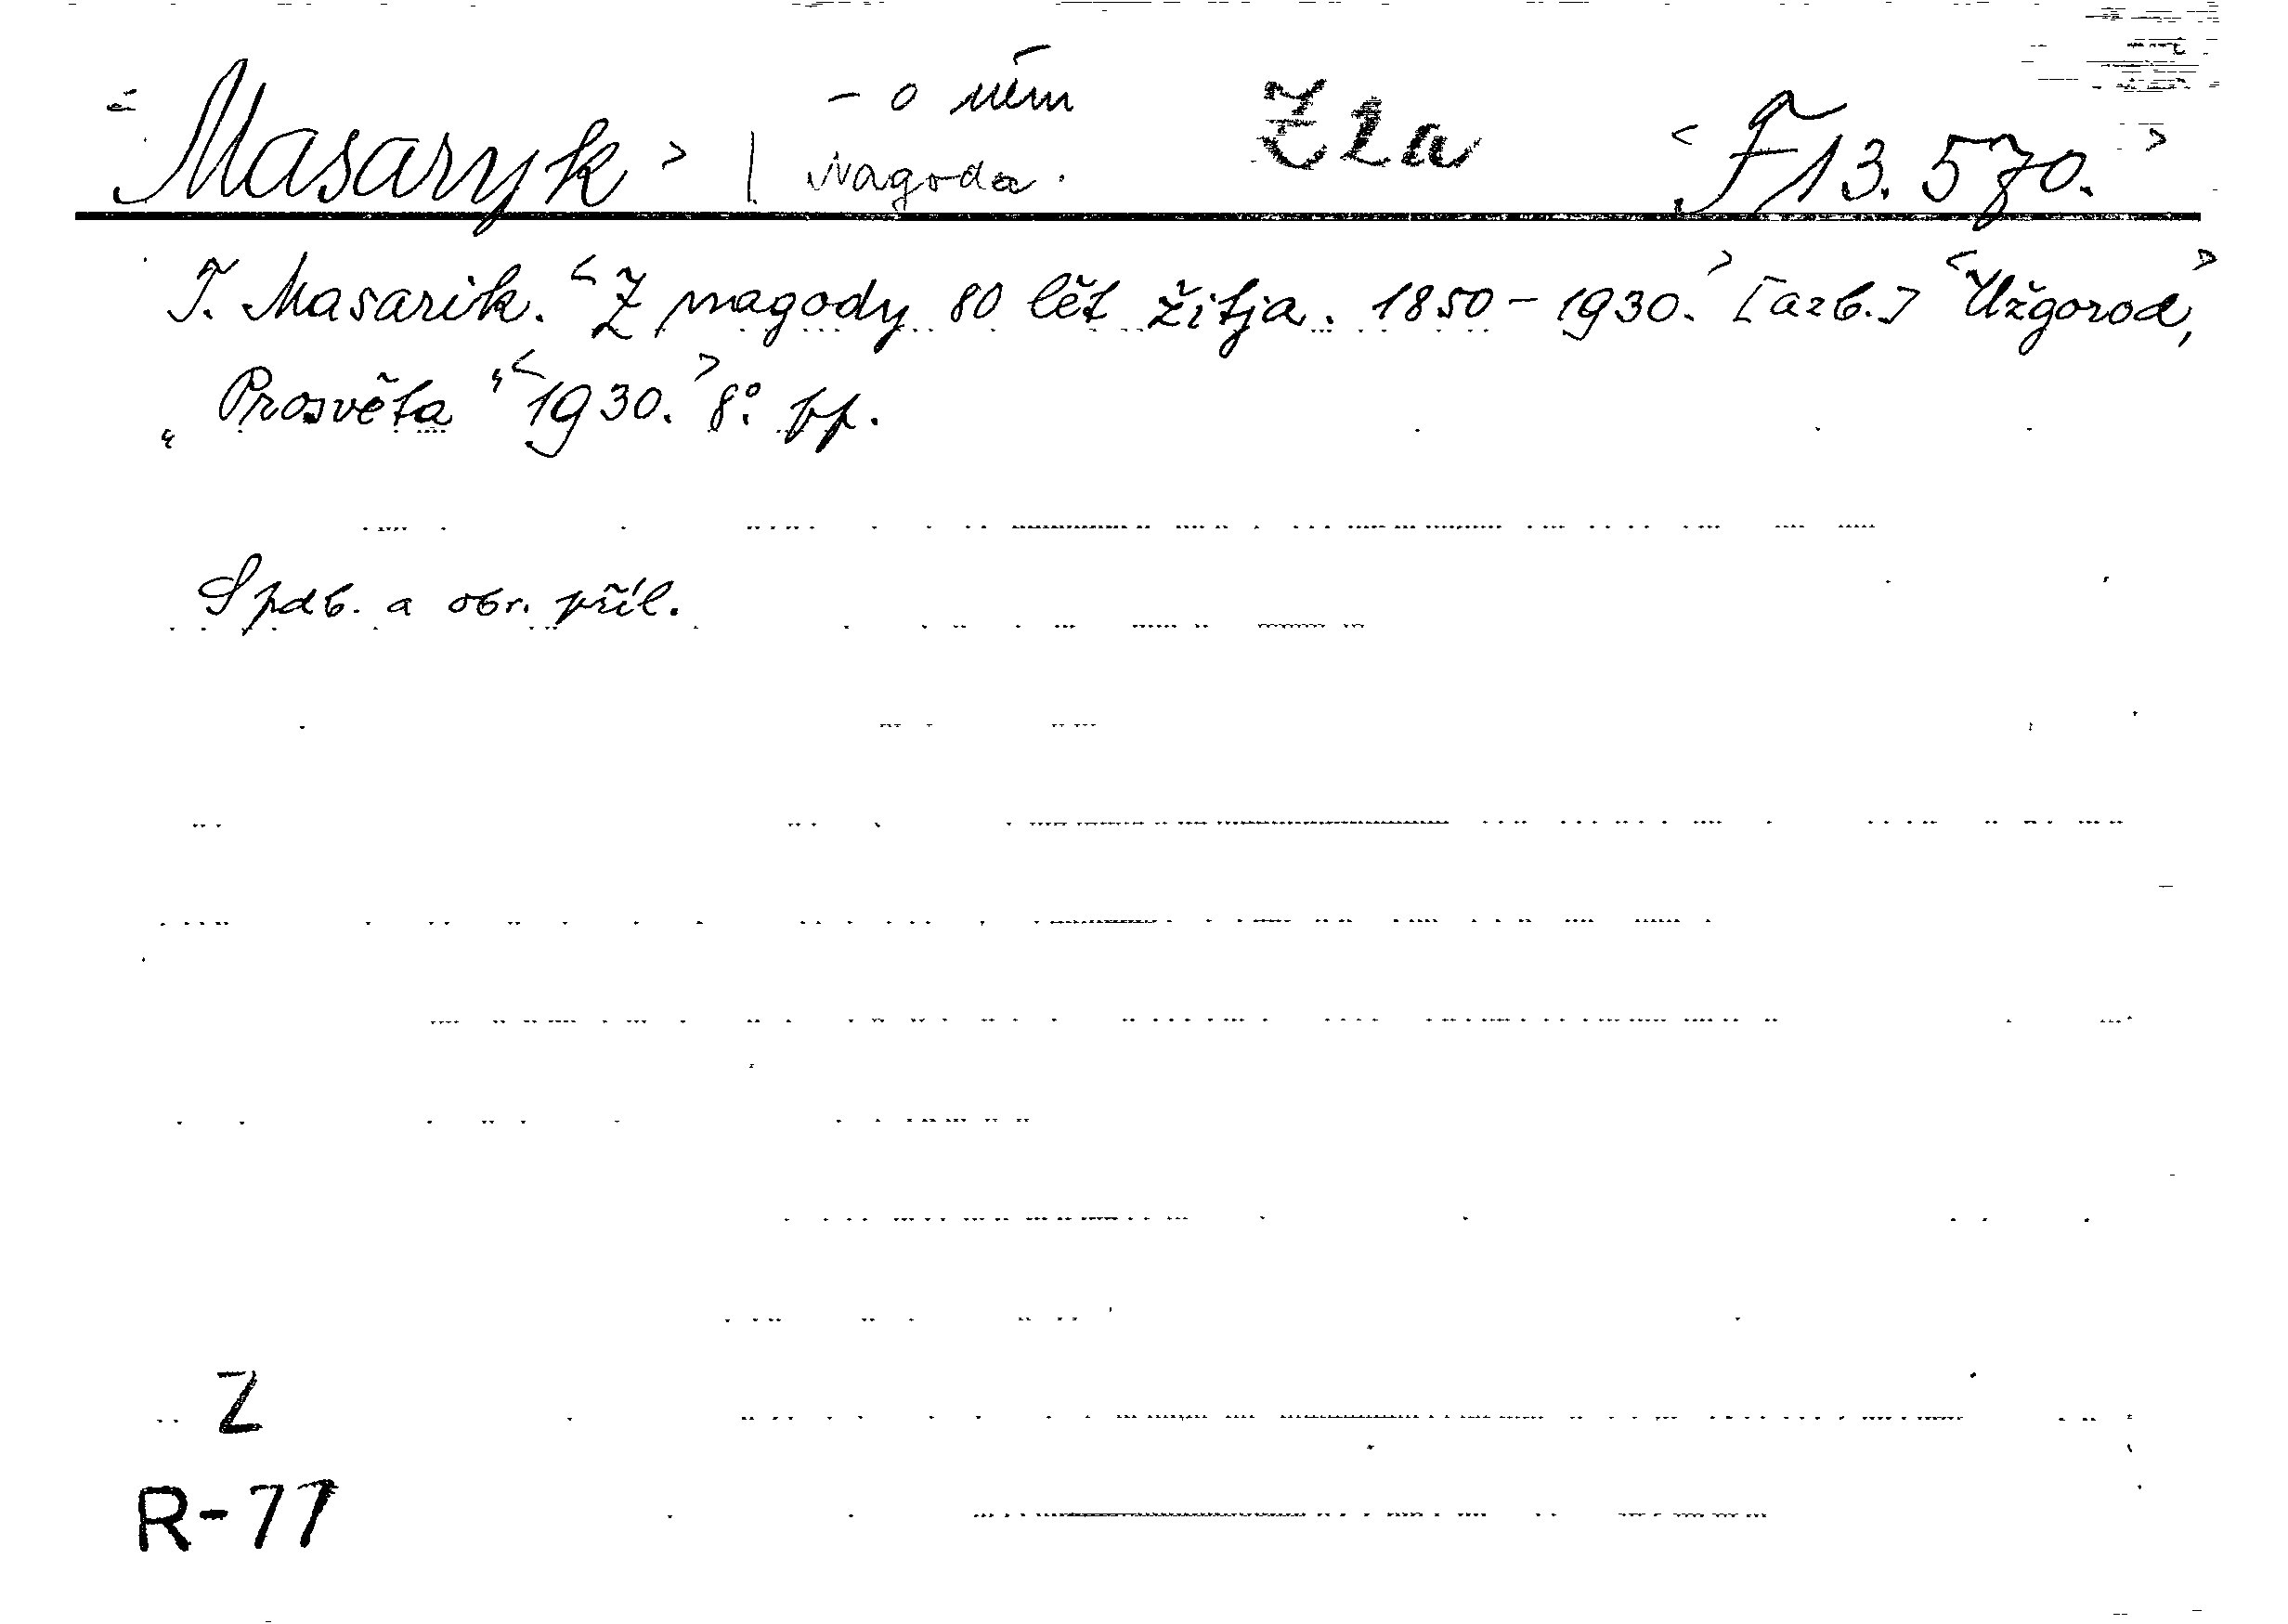 ‹Masaryk› | – o něm Nagoda. Z2a ‹F13.570.›
T. Masarik. ‹Z nagody 80 lět žitja. 1850–1930.› [azb.] ‹Užgorod,›
„Prosvěta“ ‹1930.› 8º. pp.
S pdb. a obr. příl.
Z
R-77